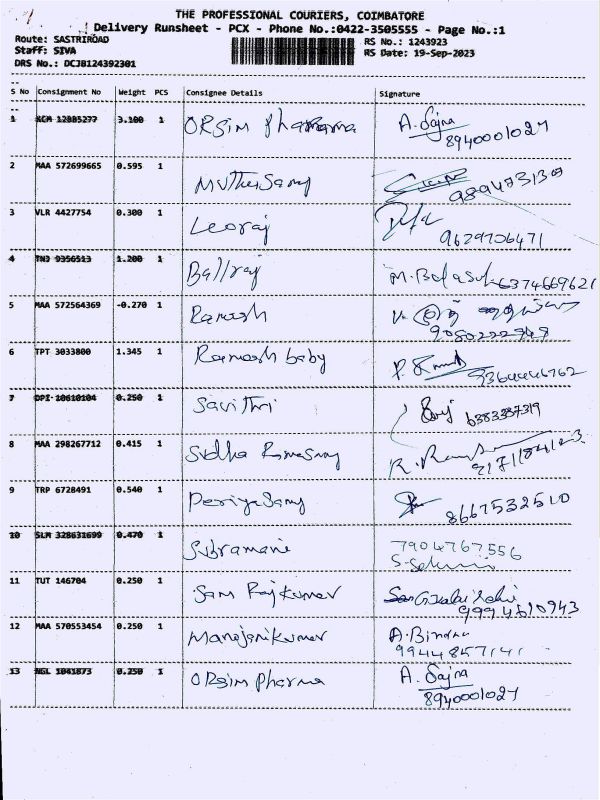 THE PROFESSIONAL COURIERS, COIMBATORE
Delivery Runsheet - PCX - Phone No.:0422-3505555 - Page No.:1
Route: SASTRIROAD
Staff: SIVA
DRS No.: DCJB124392301
RS No.: 1243923
RS Date: 19-Sep-2023
S No Consignment No Weight PCS Consignee Details Signature
1 KCM 12885277 3.100 1 ORSim pharma A. Sajna
8940001027
2 MAA 572699665 0.595 1 Muthusamy
9894731307
3 VLR 4427754 0.300 1 Leoraj
9629706471
4 TNJ 9356513 1.200 1 Ballraj M. Bala 6374669621
5 MAA 572564369 -0.270 1 Ramesh
9080222948
6 TPT 3033800 1.345 1 Ramesh baby
9364446762
7 DPI 10610104 0.250 1 Savithri
6383387319
8 MAA 298267712 0.415 1 Sudha Ramasamy R.
9 TRP 6728491 0.540 1 Periyasamy
8667532510
10 SLM 328631699 0.470 1 Subramani 7904767556
S-Selvi
11 TUT 146704 0.250 1 Sam Rajkumar
9994610943
12 MAA 570553454 0.250 1 Manojenikumar A. Bindhu
9944857141
13 NGL 1041873 0.250 1 ORSim pharma A. Sajna
8940001027